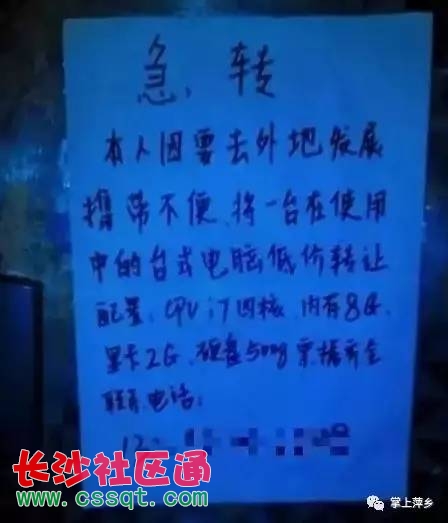 急、转
本人因要去外地发展
携带不便、将一台在使用
中的台式电脑低价转让
配置、CPU i7四核、内存8G、
显卡2G、硬盘500g票据齐全
联系电话:
长沙社区通
www.cssqt.com
掌上萍乡